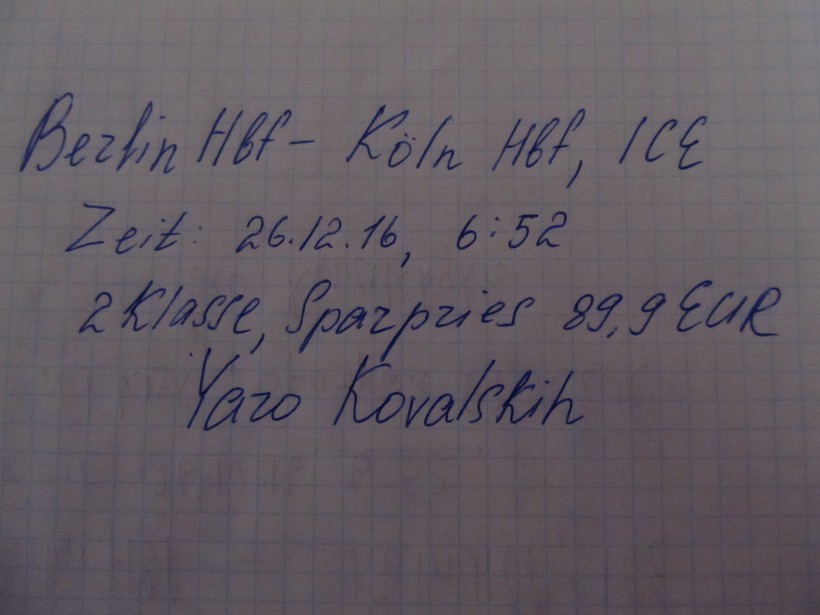 Berlin Hbf - Köln Hbf, ICE
Zeit: 26.12.16, 6:52
2 Klasse, Sparpries 89,9 EUR
Yaro Kovalskih